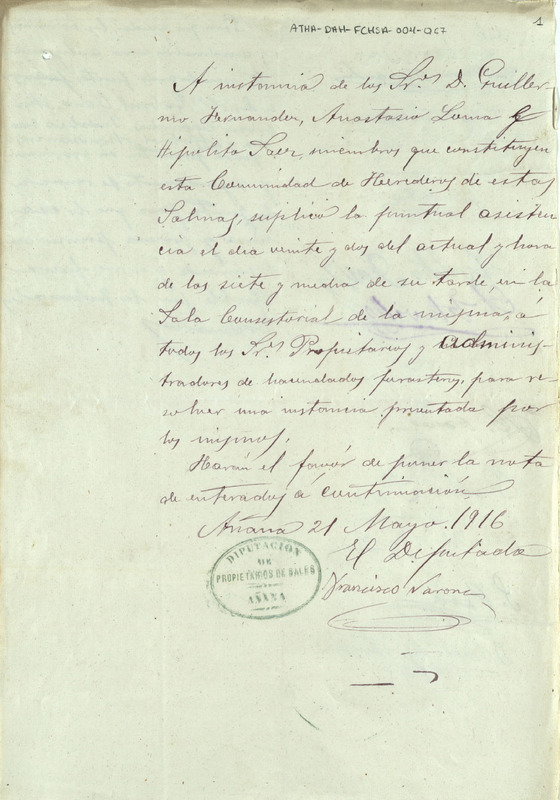 ATHA-DAH-FCHSA-004-067
1
A instancia de los Srs D. Guiller-
mo Fernandez, Anastasio Loma y
Hipolito Saez, miembros que constituyen
esta Comunidad de Herederos de estas
Salinas, suplico la puntual asisten
cia el dia veinte y dos del actual y hora
de las siete y media de su tarde, en la
Sala Consistorial de la misma, á
todos los Srs Propietarios y adminis-
tradores de hacendados forasteros, para re
solver una instancia presentada por
los mismos.
Harán el favor de poner la nota
de enterados á continuación
Añana 21 Mayo. 1916
El Diputado
Francisco Varona
DIPUTACIÓN
DE
PROPIETARIOS DE SALES
AÑANA